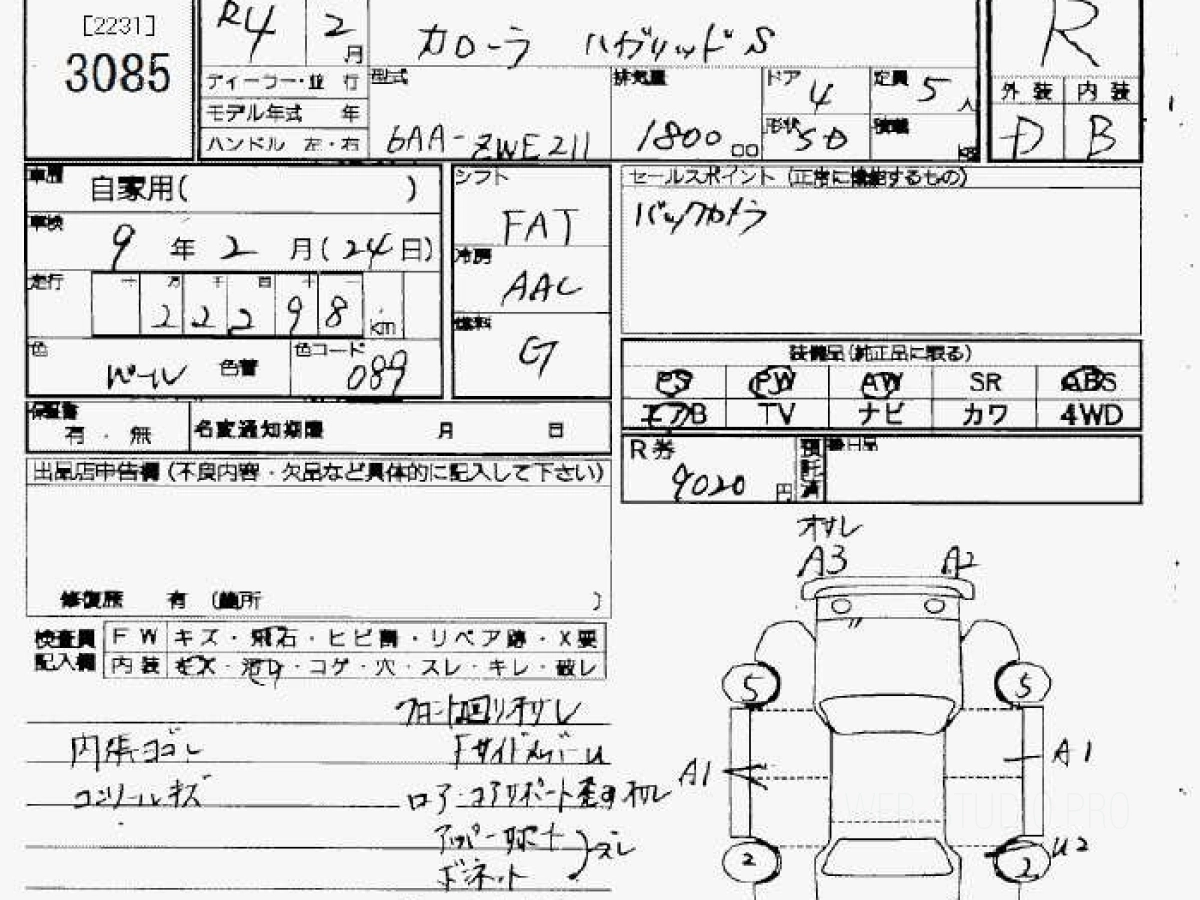 [2231]
3085
R4 2月
カローラ ハイブリッド S
R
ディーラー・並 行
モデル年式 年
ハンドル 左・右
型式
6AA-ZWE211
排気量
1800 cc
ドア 4
形状 SD
定員 5人
積載 kg
外装 内装
D B
車歴 自家用( )
車検 9年2月(24日)
走行 十万千百十一
22298 km
色 パール 色替
色コード 089
シフト FAT
冷房 AAC
燃料 G
セールスポイント (正常に機能するもの)
バックカメラ
装備品(純正品に限る)
PS PW AW SR ABS
エアB TV ナビ カワ 4WD
保証書 有・無
名変通知期限 月 日
R券 9020円 預託済
後日品
出品店申告欄(不良内容・欠品など具体的に記入して下さい)
修復歴 有 (箇所 )
検査員記入欄
FW キズ・飛石・ヒビ割・リペア跡・X要
内装 キズ・汚レ・コゲ・穴・スレ・キレ・破レ
フロント廻りオサレ
内張ヨゴレ
FサイドメンバーU
コンソールキズ
ロアコアサポート歪
アッパーサポート
ボンネット
ズレ
オサレ
A3 A2
5 5
A1 A1
2 2 U2
WEB STUDIO PRO